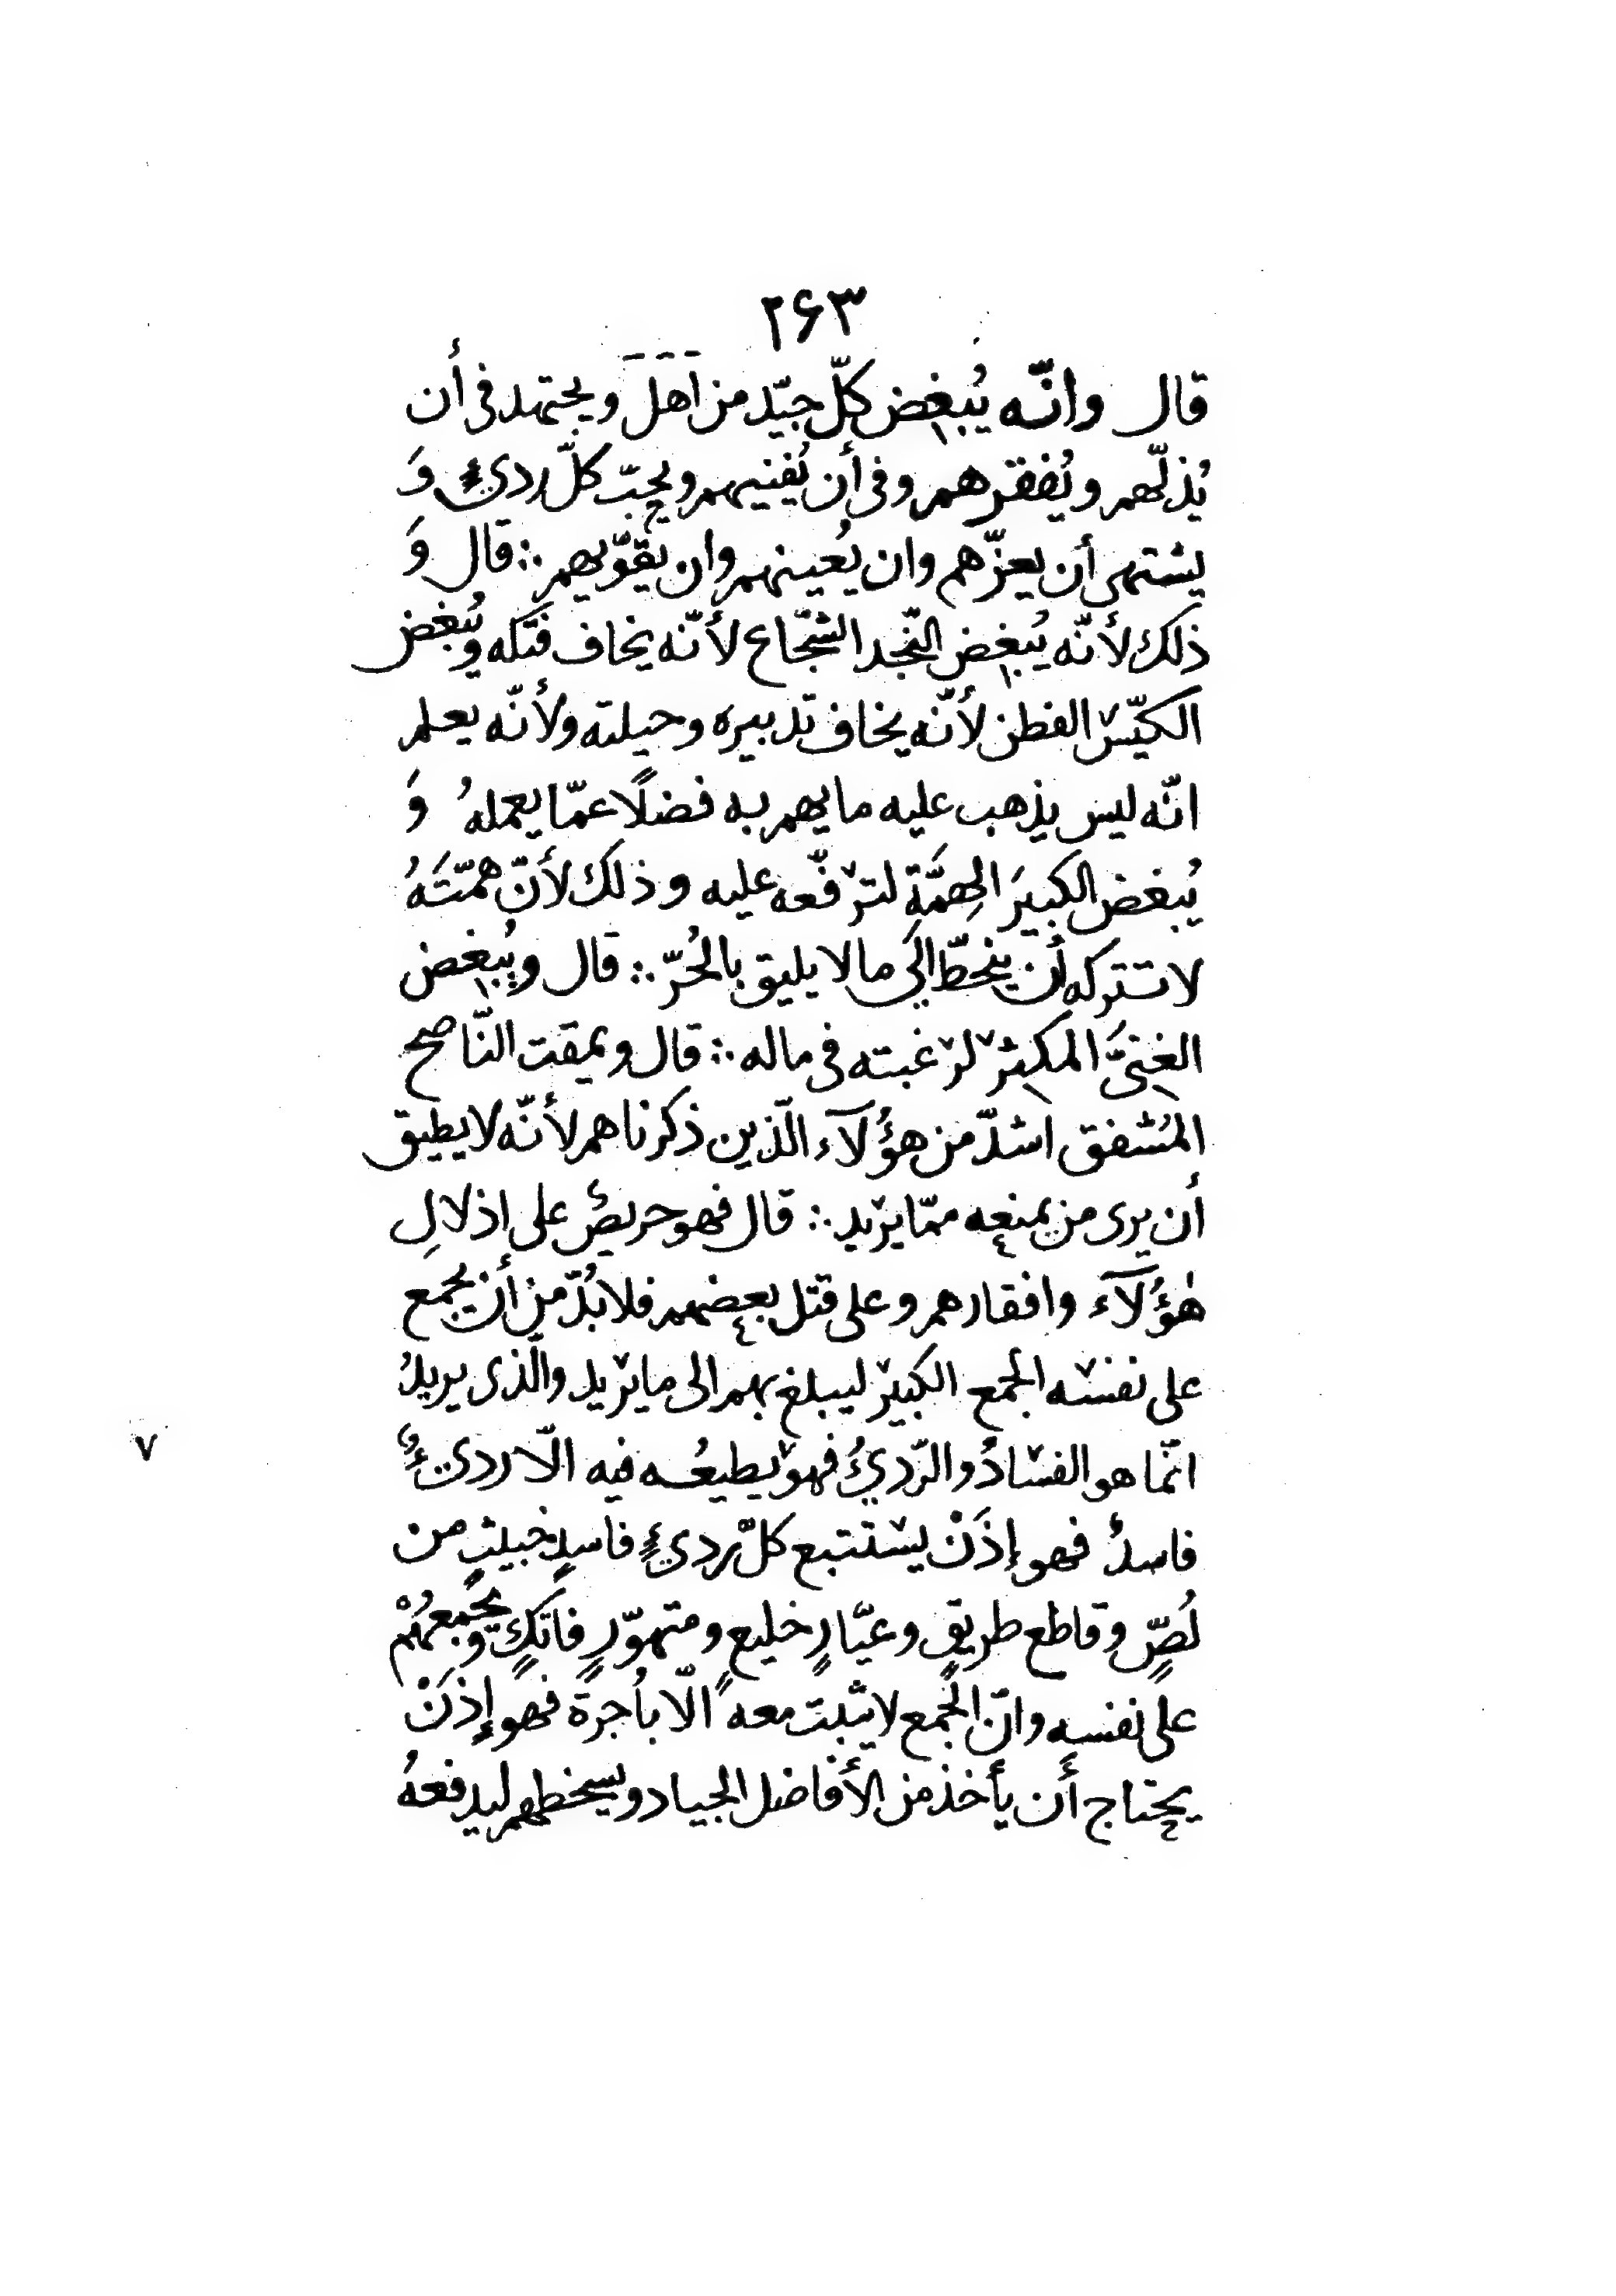 ۲۶۳
قال وانّه يُبغض كلّ جيّد من اهل ويجتهد فى أن
يُذلّهم ويُفقرهم وفى أن يُفنيهم ويحبّ كلّ ردىءٍ وَ
يشتهى أن يعزّهم وان يُعينهم وان يقوّيهم ∴ قال وَ
ذلك لأنّه يُبغض النّجد الشّجاع لأنّه يخاف فتكه ويُبغض
الكيّس الفطن لأنّه يخاف تدبيره وحيلته ولأنّه يعلم
انّه ليس يذهب عليه ما يهم به فضلًا عمّا يعملهُ وَ
يُبغض الكبيرَ الهِمَّةِ لترفّعه عليه وذلك لأنّ همّتَهُ
لا تتركه أن ينحطّ الى ما لا يليق بالحُرّ ∴ قال ويُبغض
الغنىَّ المكثر لرغبته فى ماله ∴ قال ويمقت النّاصح
المُشفق اشدّ من هؤُلآء الّذين ذكرناهم لأنّه لا يطيق
أن يرى من يمنعه ممّا يريد ∴ قال فهو حريصٌ على اذلالِ
هٰؤُلآء وافقارهم وعلى قتل بعضهم فلا بُدّ من أن يجمع
على نفسه الجمع الكبير ليبلغ بهم الى ما يريد والّذى يريدُ
انّما هو الفسادُ والرّدىءُ فهو يطيعُه فيه الّا ردىءٌ
فاسدٌ فهو إذَنْ يستتبع كلّ ردىءٍ فاسدٍ خبيثٍ من
لُصٍّ وقاطع طريقٍ وعيّارٍ خليعٍ ومتهوّرٍ فاتكٍ ويجمعهُمْ
على نفسه وانّ الجمع لا يثبت معهُ الّا بأُجرة فهو إذَنْ
يحتاج أن يأخذ من الأفاضل الجياد ويسخطهم ليدفعهُ
۷